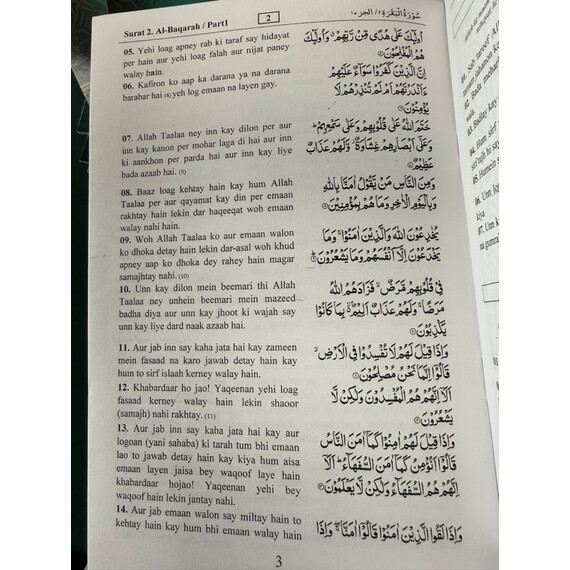 Surat 2. Al-Baqarah / Part1
2
سُورَةُ الْبَقَرَة ٢ / الجزء ١
05. Yehi loag apney rab ki taraf say hidayat
per hain aur yehi loag falah aur nijat paney
walay hain.
06. Kafiron ko aap ka darana ya na darana
barabar hai (8) yeh log emaan na layen gay.
07. Allah Taalaa ney inn kay dilon per aur
inn kay kanon per mohar laga di hai aur inn
ki aankhon per parda hai aur inn kay liye
bada azaab hai. (9)
08. Baaz loag kehtay hain kay hum Allah
Taalaa per aur qayamat kay din per emaan
rakhtay hain lekin dar haqeeqat woh emaan
walay nahi hain.
09. Woh Allah Taalaa ko aur emaan walon
ko dhoka detay hain lekin dar-asal woh khud
apney aap ko dhoka dey rahey hain magar
samajhtay nahi. (10)
10. Unn kay dilon mein beemari thi Allah
Taalaa ney unhein beemari mein mazeed
badha diya aur unn kay jhoot ki wajah say
unn kay liye dard naak azaab hai.
11. Aur jab inn say kaha jata hai kay zameen
mein fasaad na karo jawab detay hain kay
hum to sirf islaah kerney walay hain.
12. Khabardaar ho jao! Yaqeenan yehi loag
fasaad kerney walay hain lekin shaoor
(samajh) nahi rakhtay. (11)
13. Aur jab inn say kaha jata hai kay aur
logoan (yani sahaba) ki tarah tum bhi emaan
lao to jawab detay hain kay kiya hum aisa
emaan layen jaisa bey waqoof laye hain
khabardaar hojao! Yaqeenan yehi bey
waqoof hain lekin jantay nahi.
14. Aur jab emaan walon say miltay hain to
kehtay hain kay hum bhi emaan walay hain
أُولَٰئِكَ عَلَىٰ هُدًى مِّن رَّبِّهِمْ وَأُولَٰئِكَ
هُمُ الْمُفْلِحُونَ
إِنَّ الَّذِينَ كَفَرُوا سَوَاءٌ عَلَيْهِمْ
ءَأَنذَرْتَهُمْ أَمْ لَمْ تُنذِرْهُمْ لَا
يُؤْمِنُونَ
خَتَمَ اللَّهُ عَلَىٰ قُلُوبِهِمْ وَعَلَىٰ سَمْعِهِمْ
وَعَلَىٰ أَبْصَارِهِمْ غِشَاوَةٌ وَلَهُمْ عَذَابٌ
عَظِيمٌ
وَمِنَ النَّاسِ مَن يَقُولُ آمَنَّا بِاللَّهِ
وَبِالْيَوْمِ الْآخِرِ وَمَا هُم بِمُؤْمِنِينَ
يُخَادِعُونَ اللَّهَ وَالَّذِينَ آمَنُوا وَمَا
يَخْدَعُونَ إِلَّا أَنفُسَهُمْ وَمَا يَشْعُرُونَ
فِي قُلُوبِهِم مَّرَضٌ فَزَادَهُمُ اللَّهُ
مَرَضًا وَلَهُمْ عَذَابٌ أَلِيمٌ بِمَا كَانُوا
يَكْذِبُونَ
وَإِذَا قِيلَ لَهُمْ لَا تُفْسِدُوا فِي الْأَرْضِ
قَالُوا إِنَّمَا نَحْنُ مُصْلِحُونَ
أَلَا إِنَّهُمْ هُمُ الْمُفْسِدُونَ وَلَٰكِن لَّا
يَشْعُرُونَ
وَإِذَا قِيلَ لَهُمْ آمِنُوا كَمَا آمَنَ النَّاسُ
قَالُوا أَنُؤْمِنُ كَمَا آمَنَ السُّفَهَاءُ أَلَا
إِنَّهُمْ هُمُ السُّفَهَاءُ وَلَٰكِن لَّا يَعْلَمُونَ
وَإِذَا لَقُوا الَّذِينَ آمَنُوا قَالُوا آمَنَّا وَإِذَا
3